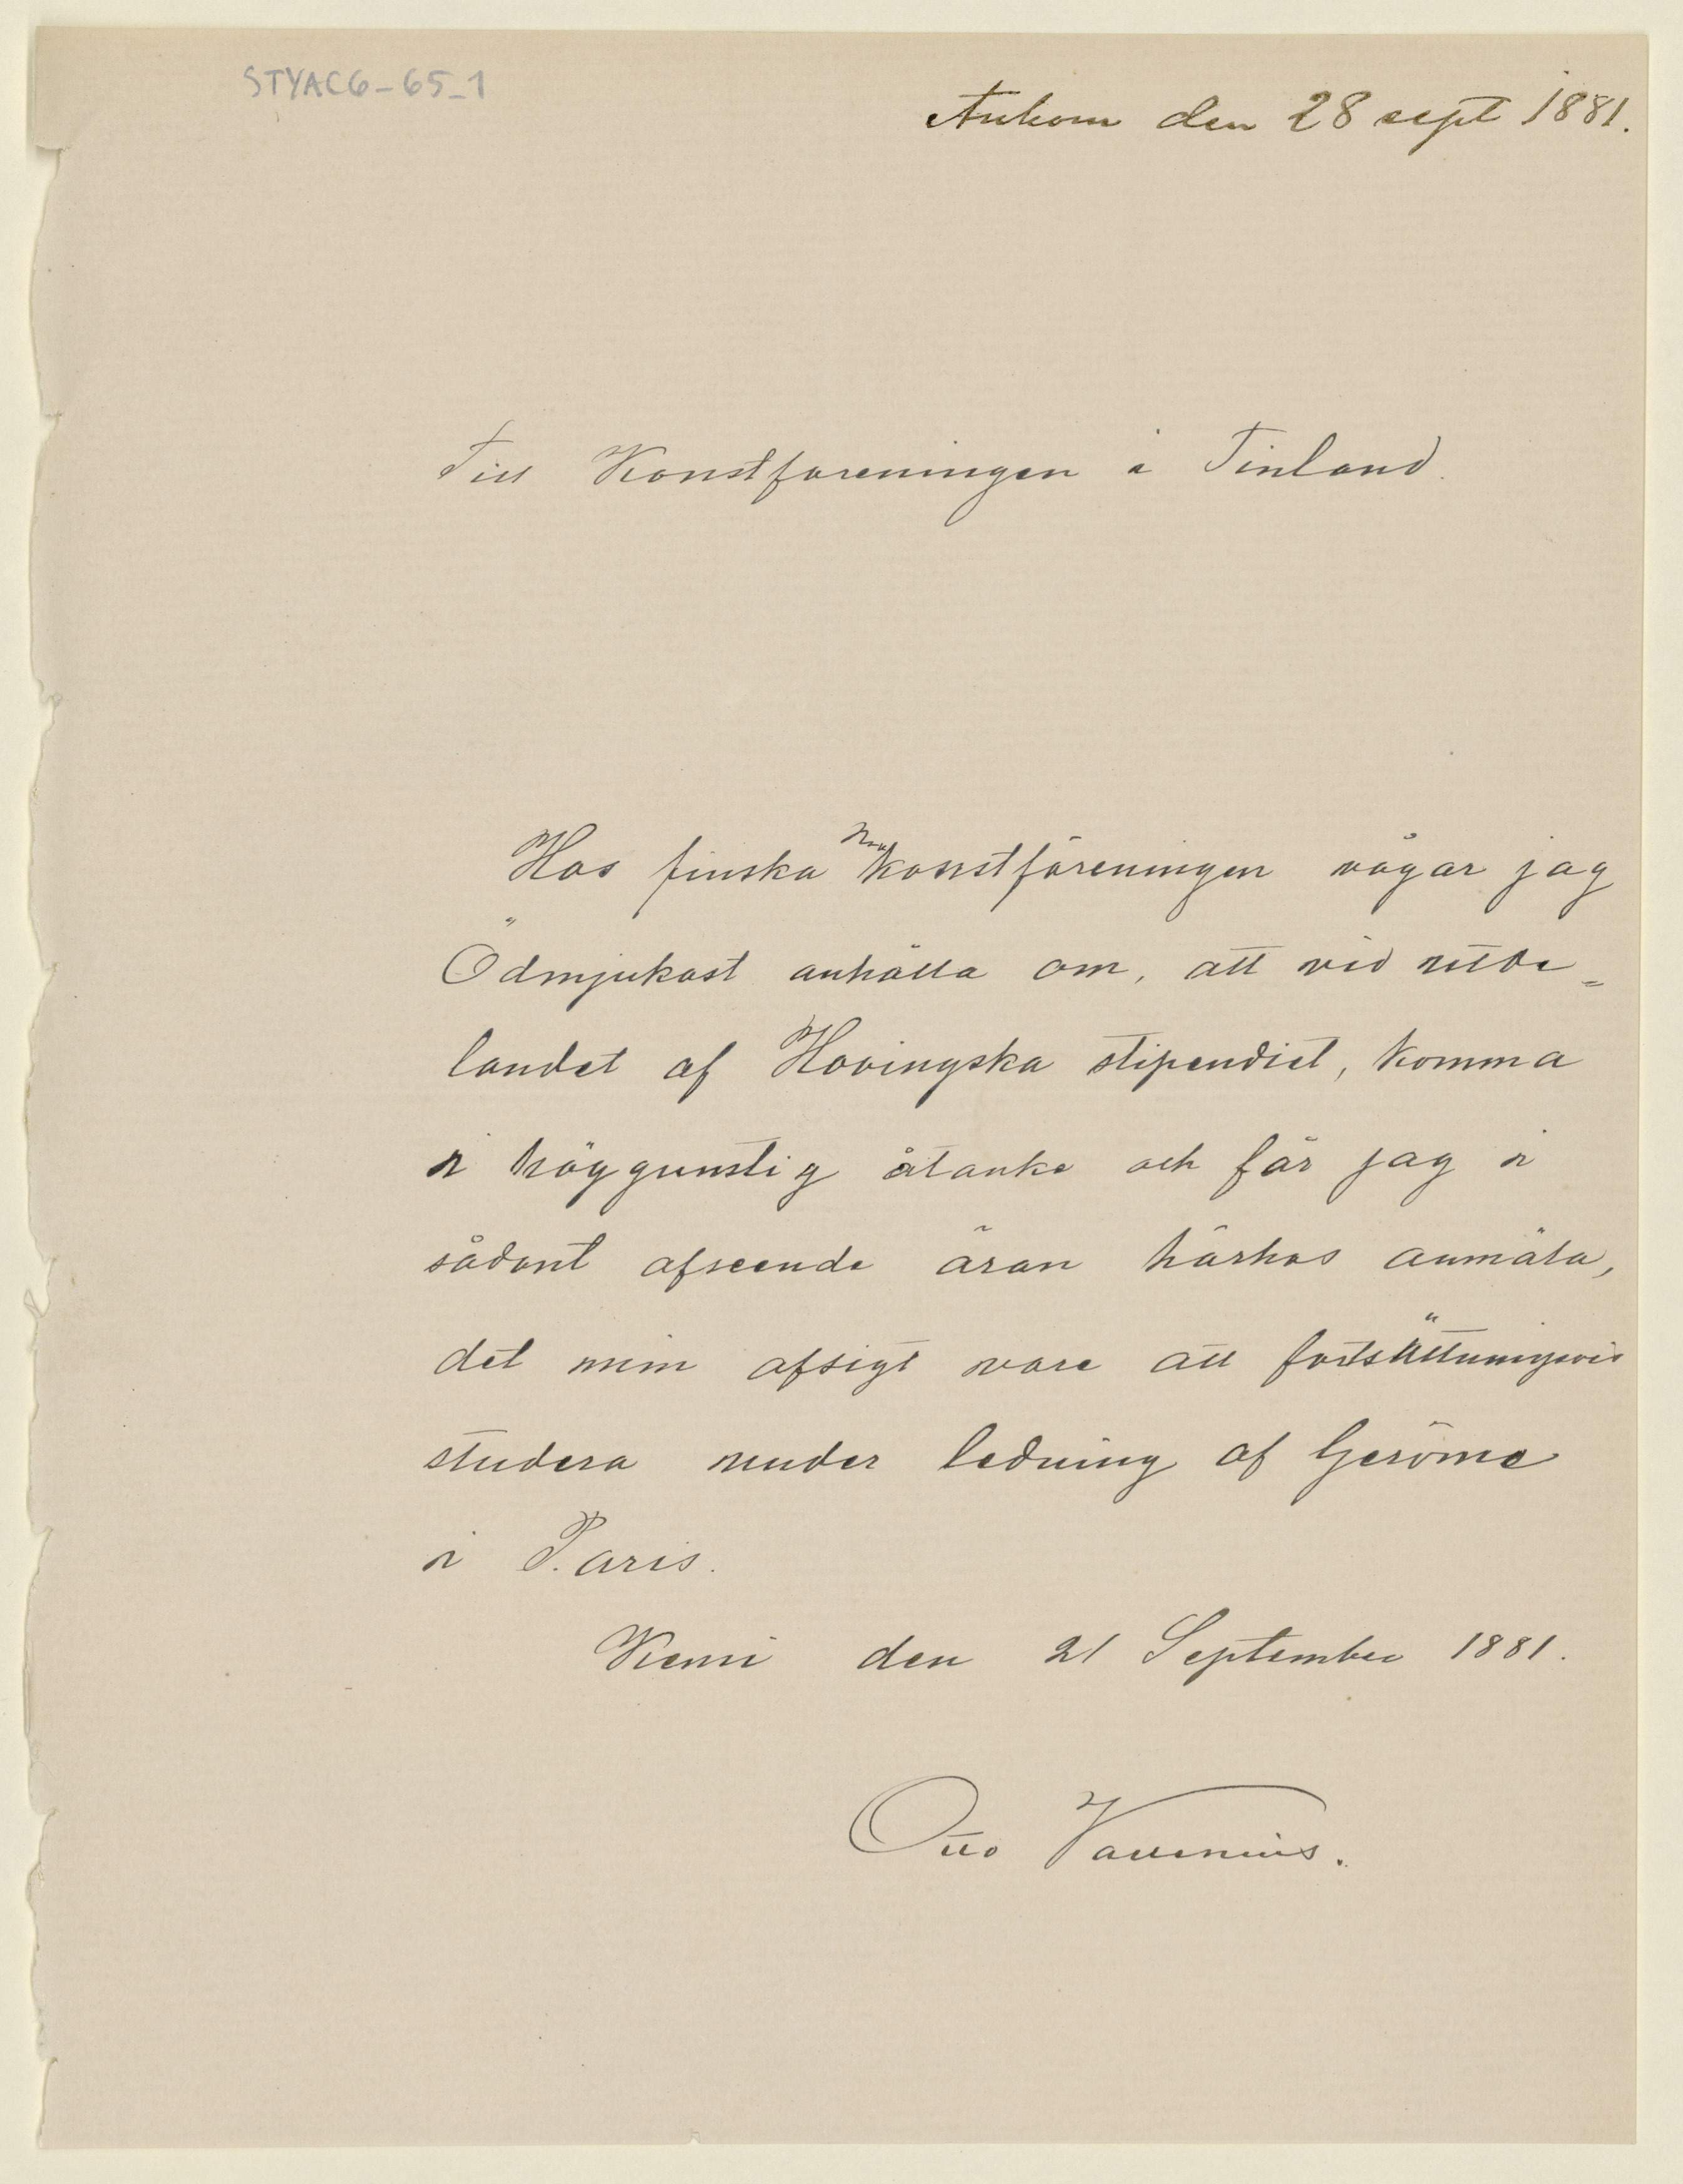 STYAC6-65_1
Ankom den 28 sept 1881.
Till Konstföreningen i Finland.
Hos finska Konstföreningen vågar jag
Ödmjukast anhålla om, att vid utde=
landet af Hovingska stipendiet, komma
i höggunstig åtanke och får jag i
sådant afseende äran härhos anmäla,
det min afsigt vore att fortsättningsvis
studera under ledning af Gerôme
i Paris.
Kemi den 21 September 1881.
Otto Vallenius.